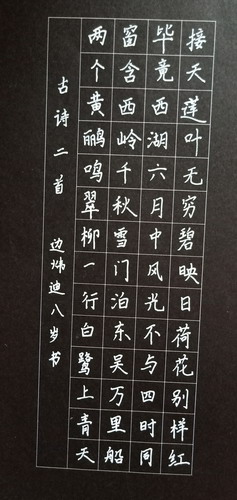 古诗二首 边炜迪八岁书
两个黄鹂鸣翠柳一行白鹭上青天
窗含西岭千秋雪门泊东吴万里船
毕竟西湖六月中风光不与四时同
接天莲叶无穷碧映日荷花别样红